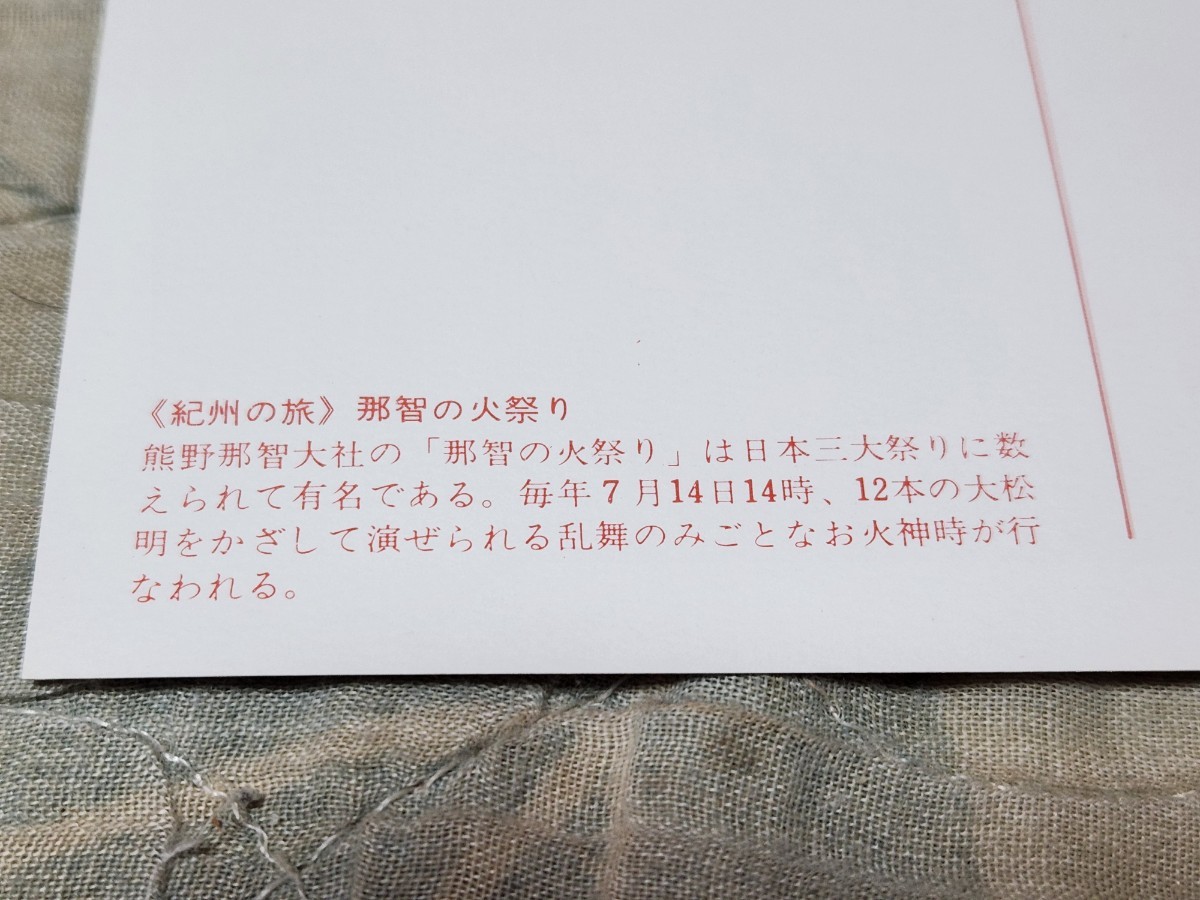 《紀州の旅》那智の火祭り
熊野那智大社の「那智の火祭り」は日本三大祭りに数
えられて有名である。毎年7月14日14時、12本の大松
明をかざして演ぜられる乱舞のみごとなお火神時が行
なわれる。